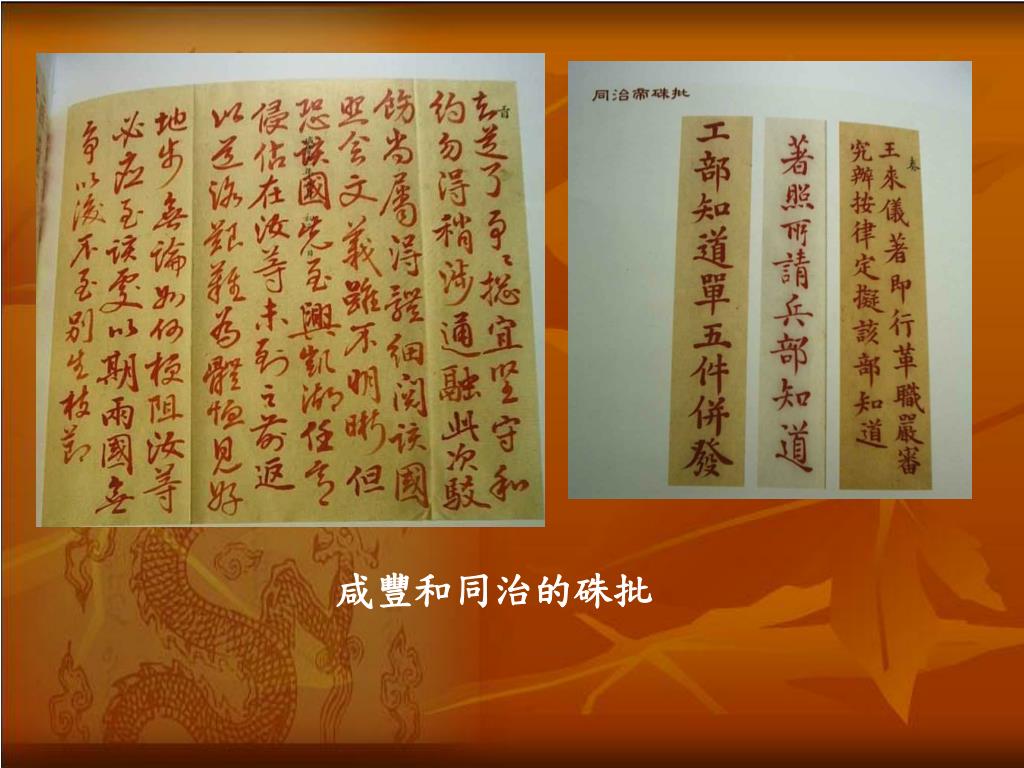 知道了事〻總宜堅守和
約勿得稍涉通融此次駁
飭尚屬得體細閱該國
照會文義雖不明晰但
恐該國先至興凱湖任意
侵佔在汝等未到之前返
以道路艱難為體恤見好
地步無論如何梗阻汝等
必應至該處以期兩國無
事以後不至別生枝節
同治帝硃批
王來儀著即行革職嚴審
究辦按律定擬該部知道
著照所請兵部知道
工部知道單五件併發
咸豐和同治的硃批